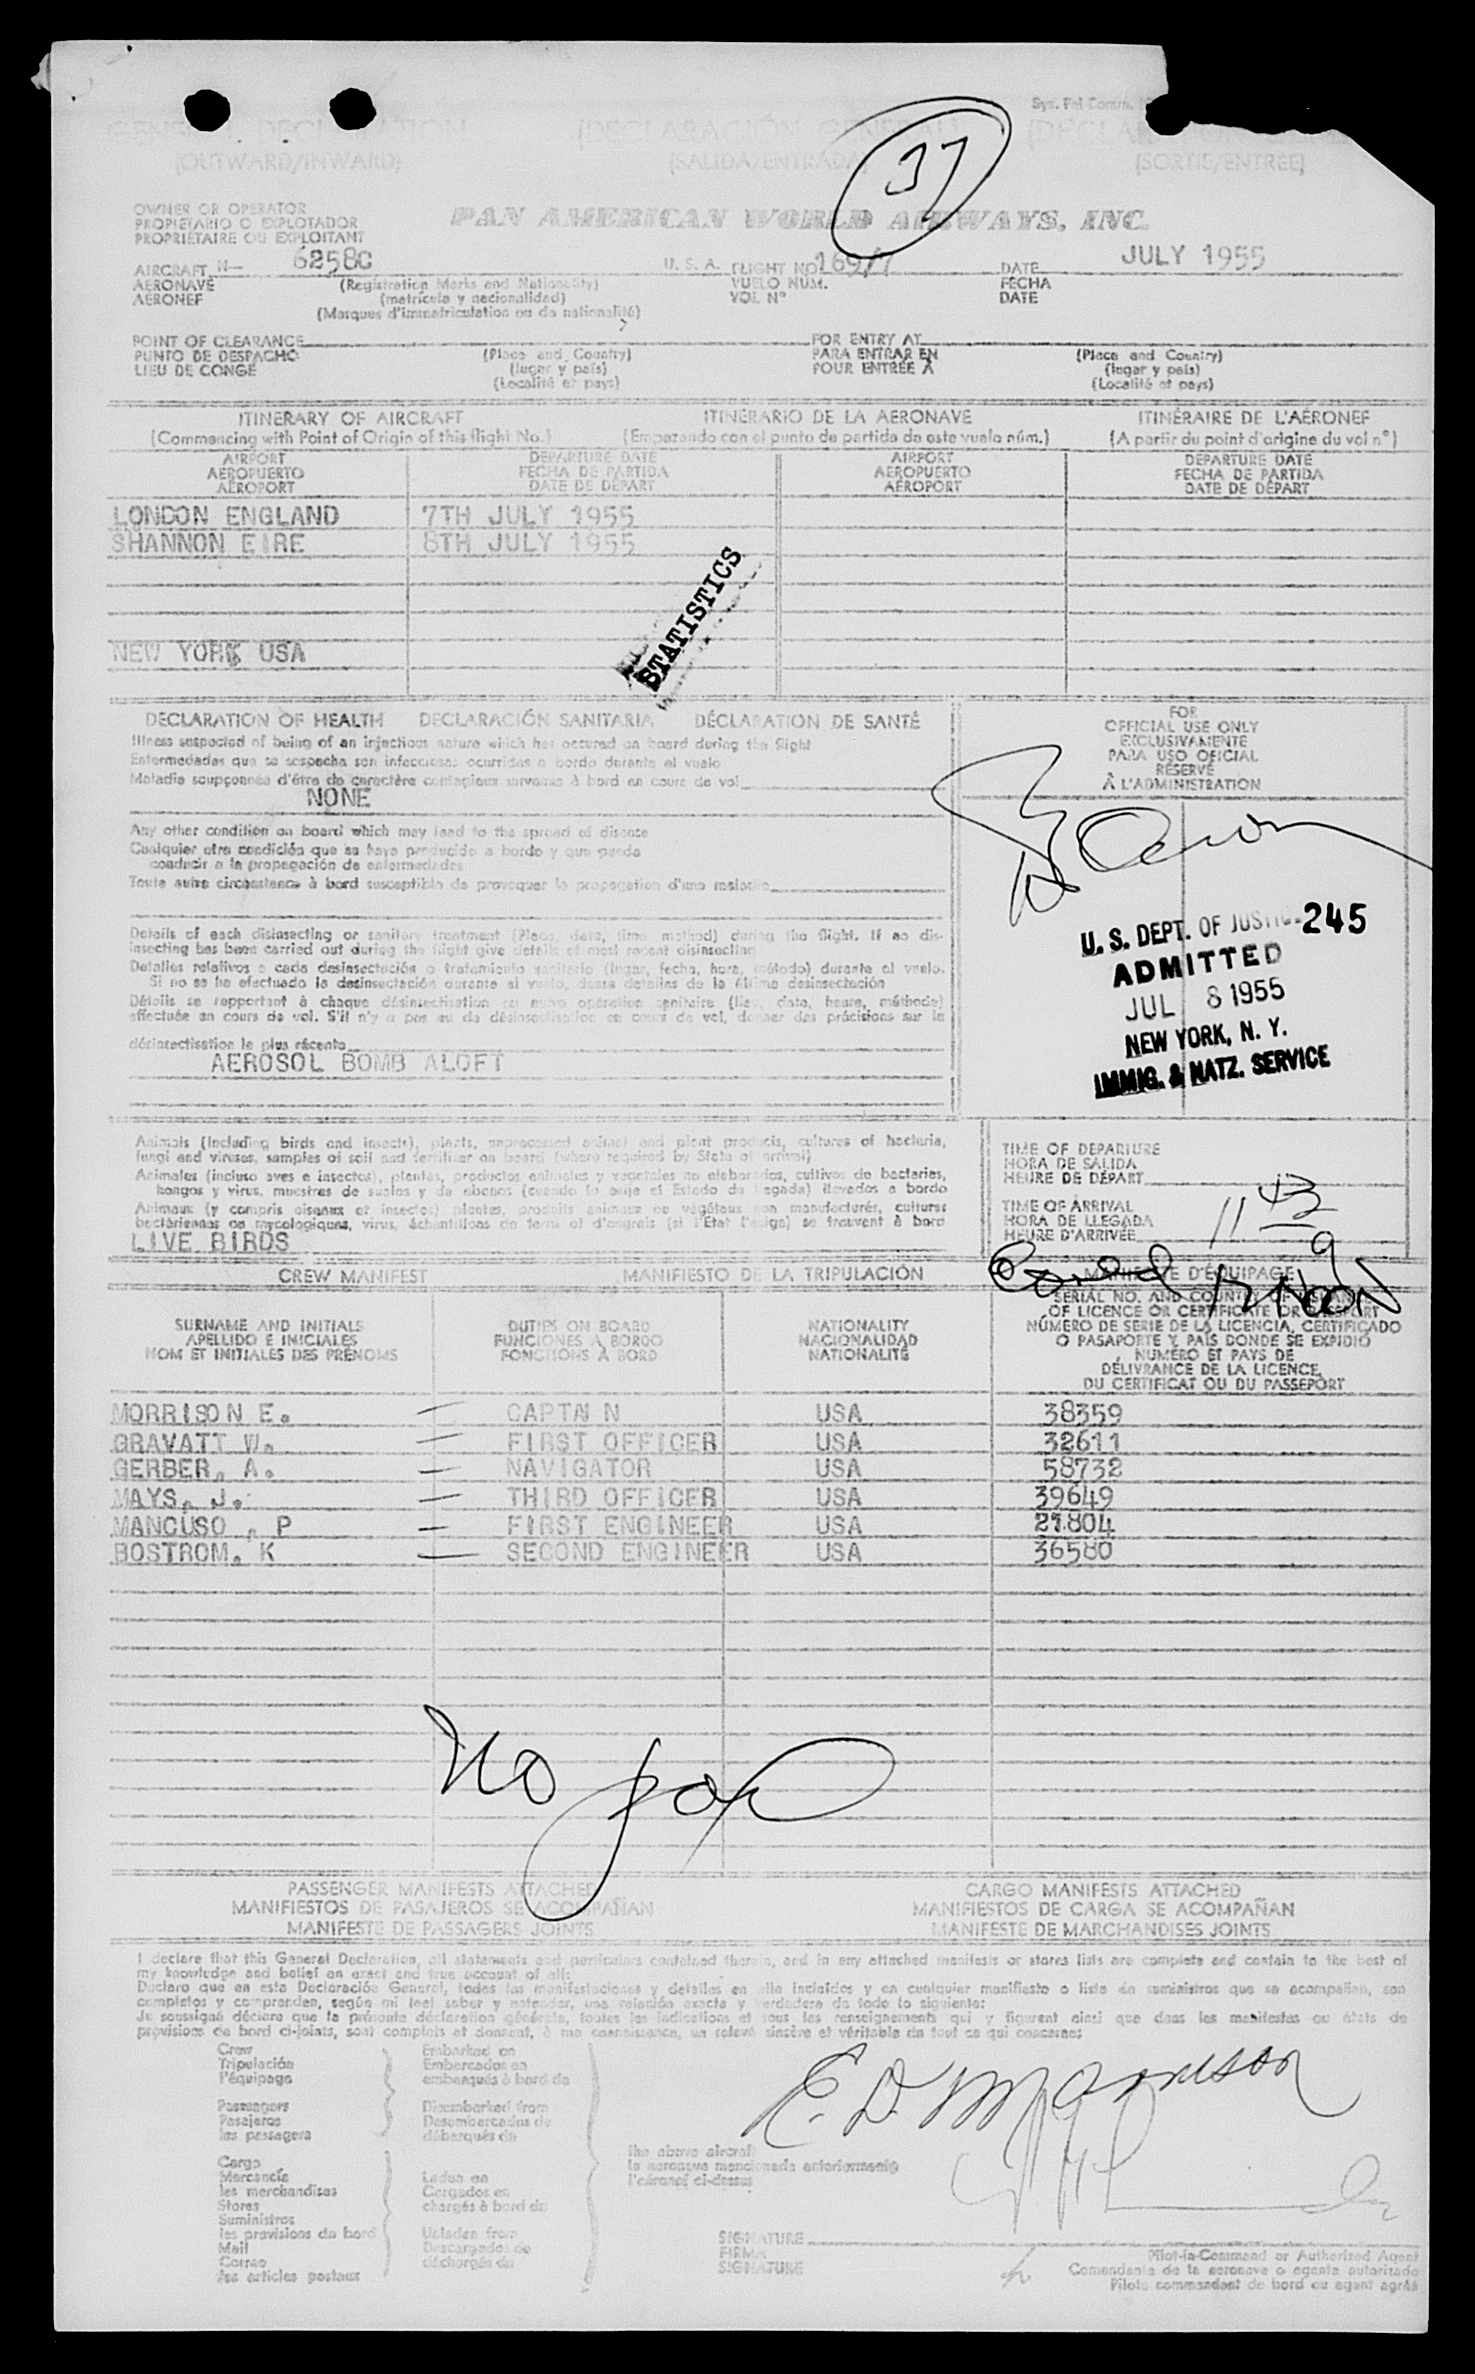 Sys. Fel Comm.
GENERAL DECLARATION (DECLARACIÓN GENERAL)
(OUTWARD/INWARD) (SALIDA/ENTRADA) (SORTIE/ENTRÉE)
37
OWNER OR OPERATOR
PROPIETARIO O EXPLOTADOR
PROPRIÉTAIRE OU EXPLOITANT
PAN AMERICAN WORLD AIRWAYS, INC.
AIRCRAFT N- 6258C U. S. A. FLIGHT NO 169/7 DATE JULY 1955
AERONAVE (Registration Marks and Nationality) VUELO NÚM. FECHA
AÉRONEF (matrícula y nacionalidad) VOL Nº DATE
(Marques d'immatriculation ou de nationalité)
POINT OF CLEARANCE FOR ENTRY AT
PUNTO DE DESPACHO (Place and Country) PARA ENTRAR EN (Place and Country)
LIEU DE CONGÉ (lugar y país) POUR ENTRÉE À (lugar y país)
(Localité et pays) (Localité et pays)
ITINERARY OF AIRCRAFT ITINERARIO DE LA AERONAVE ITINÉRAIRE DE L'AÉRONEF
(Commencing with Point of Origin of this flight No.) (Empezando con el punto de partida de este vuelo núm.) (A partir du point d'origine du vol nº)
AIRPORT DEPARTURE DATE AIRPORT DEPARTURE DATE
AEROPUERTO FECHA DE PARTIDA AEROPUERTO FECHA DE PARTIDA
AÉROPORT DATE DE DÉPART AÉROPORT DATE DE DÉPART
LONDON ENGLAND 7TH JULY 1955
SHANNON EIRE 8TH JULY 1955
STATISTICS
NEW YORK USA
DECLARATION OF HEALTH DECLARACIÓN SANITARIA DÉCLARATION DE SANTÉ
Illness suspected of being of an infectious nature which has occured on board during the flight
Enfermedades que se sospecha son infecciosas ocurridas a bordo durante el vuelo
Maladie soupçonnée d'être de caractère contagieux survenue à bord en cours de vol
NONE
Any other condition on board which may lead to the spread of disease
Cualquier otra condición que se haya producido a bordo y que pueda
conducir a la propagación de enfermedades
Toute autre circonstance à bord susceptible de provoquer la propagation d'une maladie
Details of each disinsecting or sanitary treatment (Place, date, time, method) during the flight. If no dis-
insecting has been carried out during the flight give details of most recent disinsecting
Detalles relativos a cada desinsectación o tratamiento sanitario (lugar, fecha, hora, método) durante el vuelo.
Si no se ha efectuado la desinsectación durante el vuelo, dense detalles de la última desinsectación
Détails se rapportant à chaque désinsectisation ou autre opération sanitaire (lieu, date, heure, méthode)
effectuée en cours de vol. S'il n'y a pas eu de désinsectisation en cours de vol, donner des précisions sur la
désinsectisation la plus récente
AEROSOL BOMB ALOFT
FOR
OFFICIAL USE ONLY
EXCLUSIVAMENTE
PARA USO OFICIAL
RÉSERVÉ
À L'ADMINISTRATION
U. S. DEPT. OF JUSTICE 245
ADMITTED
JUL 8 1955
NEW YORK, N. Y.
IMMIG. & NATZ. SERVICE
Animals (including birds and insects), plants, unprocessed animal and plant products, cultures of bacteria,
fungi and viruses, samples of soil and fertilizer on board (where required by State of arrival)
Animales (incluso aves e insectos), plantas, productos animales y vegetales no elaborados, cultivos de bacterias,
hongos y virus, muestras de suelos y de abonos (cuando lo exija el Estado de llegada) llevados a bordo
Animaux (y compris oiseaux et insectes) plantes, produits animaux ou végétaux non manufacturés, cultures
bactériennes ou mycologiques, virus, échantillons de terre et d'engrais (si l'État l'exige) se trouvent à bord
LIVE BIRDS
TIME OF DEPARTURE
HORA DE SALIDA
HEURE DE DÉPART
TIME OF ARRIVAL
HORA DE LLEGADA
HEURE D'ARRIVÉE
11 43
CREW MANIFEST MANIFIESTO DE LA TRIPULACIÓN MANIFESTE D'ÉQUIPAGE
SURNAME AND INITIALS DUTIES ON BOARD NATIONALITY SERIAL NO. AND COUNTRY OF ISSUANCE
APELLIDO E INICIALES FUNCIONES A BORDO NACIONALIDAD OF LICENCE OR CERTIFICATE OR PASSPORT
NOM ET INITIALES DES PRÉNOMS FONCTIONS À BORD NATIONALITÉ NÚMERO DE SERIE DE LA LICENCIA, CERTIFICADO
O PASAPORTE Y PAÍS DONDE SE EXPIDIÓ
NUMÉRO ET PAYS DE
DÉLIVRANCE DE LA LICENCE,
DU CERTIFICAT OU DU PASSEPORT
MORRISON E. — CAPTAIN USA 38359
GRAVATT W. — FIRST OFFICER USA 32611
GERBER, A. — NAVIGATOR USA 58732
MAYS, J. — THIRD OFFICER USA 39649
MANCUSO, P — FIRST ENGINEER USA 21804
BOSTROM, K — SECOND ENGINEER USA 36580
No pax
PASSENGER MANIFESTS ATTACHED CARGO MANIFESTS ATTACHED
MANIFIESTOS DE PASAJEROS SE ACOMPAÑAN MANIFIESTOS DE CARGA SE ACOMPAÑAN
MANIFESTE DE PASSAGERS JOINTS MANIFESTE DE MARCHANDISES JOINTS
I declare that this General Declaration, all statements and particulars contained therein, and in any attached manifests or stores lists are complete and contain to the best of
my knowledge and belief an exact and true account of all:
Declaro que en esta Declaración General, todas las manifestaciones y detalles en ella incluidos y en cualquier manifiesto o lista de suministros que se acompañan, son
completos y comprenden, según mi leal saber y entender, una relación exacta y verdadera de todo lo siguiente:
Je soussigné déclare que la présente déclaration générale, toutes les indications et tous les renseignements qui y figurent ainsi que dans les manifestes ou états de
provisions de bord ci-joints, sont complets et donnent, à ma connaissance, un relevé sincère et véritable de tout ce qui concerne:
Crew Embarked on
Tripulación Embarcados en
l'équipage embarqués à bord de
Passengers Disembarked from
Pasajeros Desembarcados de
les passagers débarqués de
the above aircraft
la aeronave mencionada anteriormente
l'aéronef ci-dessus
Cargo
Mercancía Laden on
les marchandises Cargados en
Stores chargés à bord de
Suministros
les provisions de bord Unladen from
Mail Descargados de
Correo déchargés de
les articles postaux
E. D. Morrison
SIGNATURE
FIRMA
SIGNATURE
Pilot-in-Command or Authorized Agent
Comandante de la aeronave o agente autorizado
Pilote commandant de bord ou agent agréé